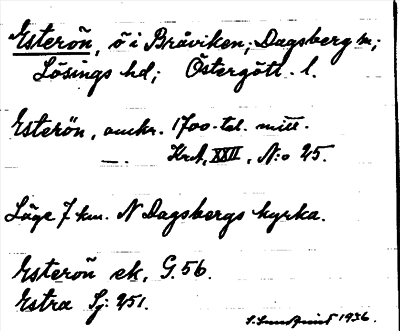 Esterön, ö i Bråviken; Dagsberg sn;
Lösings hd; Östergötl. l.
Esterön, omkr. 1700-tal. mitt.
KrA, XXII, N:o 25.
Läge 7 km. N Dagsbergs kyrka.
Esterön ek. G. 56.
Estra Sj: 251.
S. Lundqvist 1936.